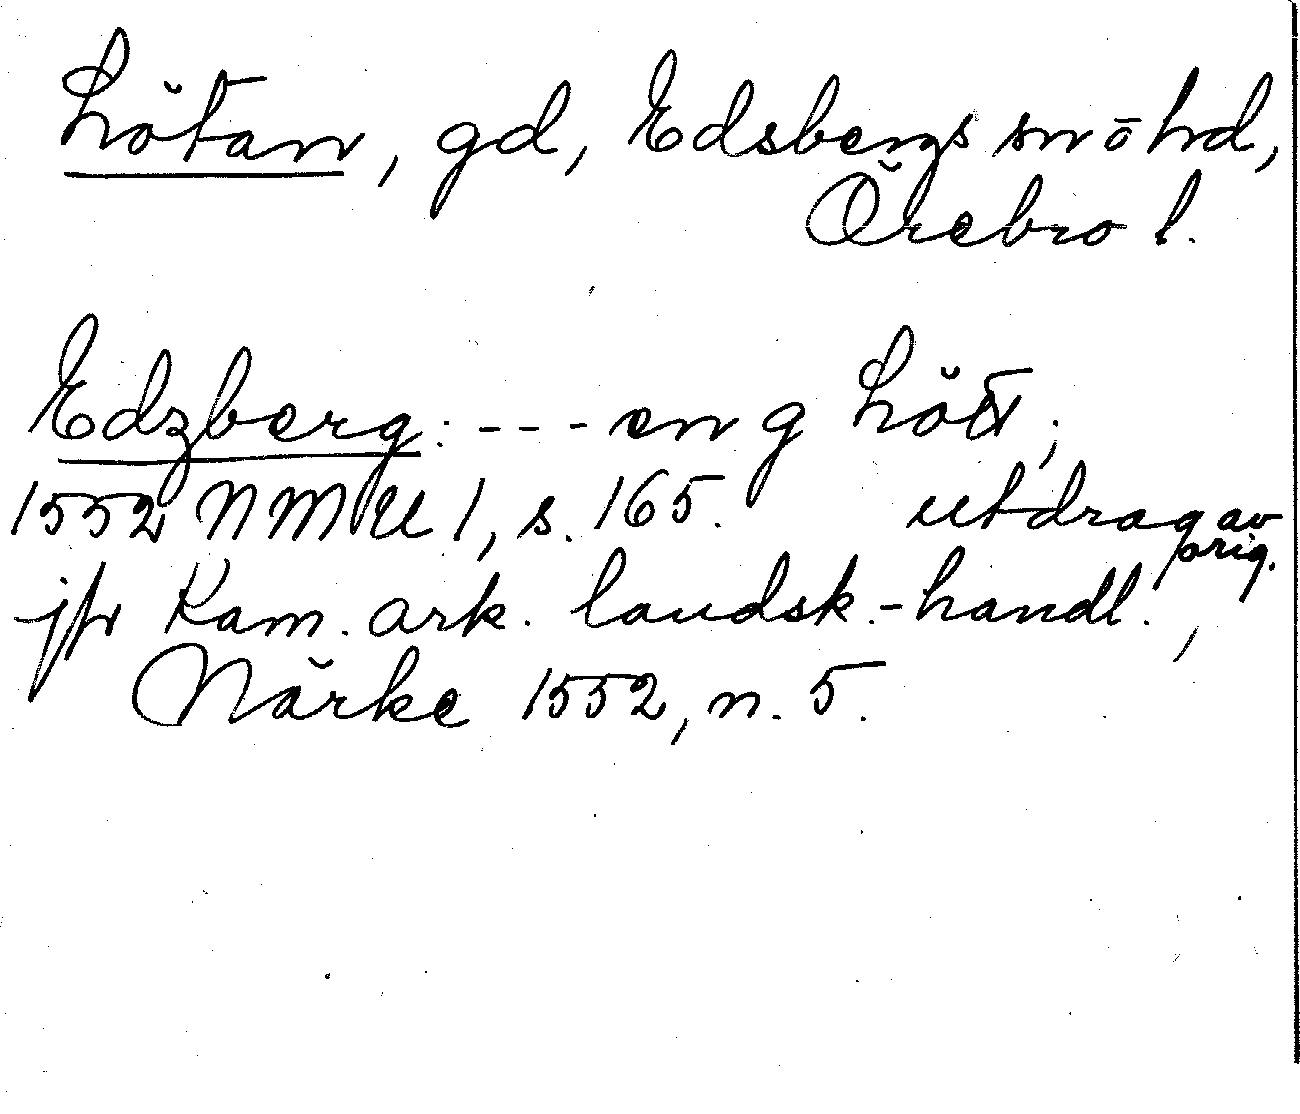 Lötan, gd, Edsbergs sn o hd,
Örebro l.
Edzberg: --- en g Lött;
1552 NMU 1, s. 165. utdrag av
orig.
jfr Kam. ark. landsk.-handl.,
Närke 1552, n. 5.